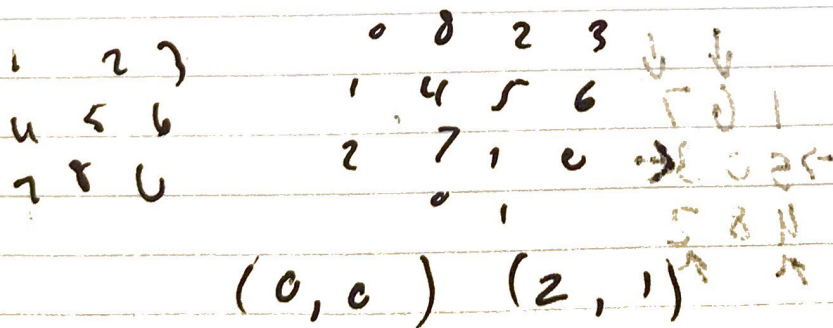 1 2 3
4 5 6
7 8 0
0 8 2 3
1 4 5 6
2 7 1 0
0 1
(0,0) (2,1)